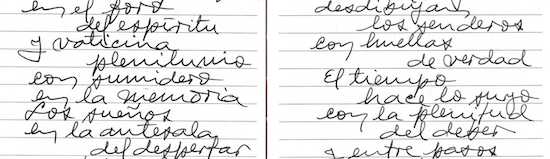 en el foro
del espíritu
y vaticina
plenilunio
con sumidero
en la memoria
Los sueños
en la antesala
del despertar
desdibujan
los senderos
con huellas
de verdad
El tiempo
hace lo suyo
con la plenitud
del deber
y entre pasos